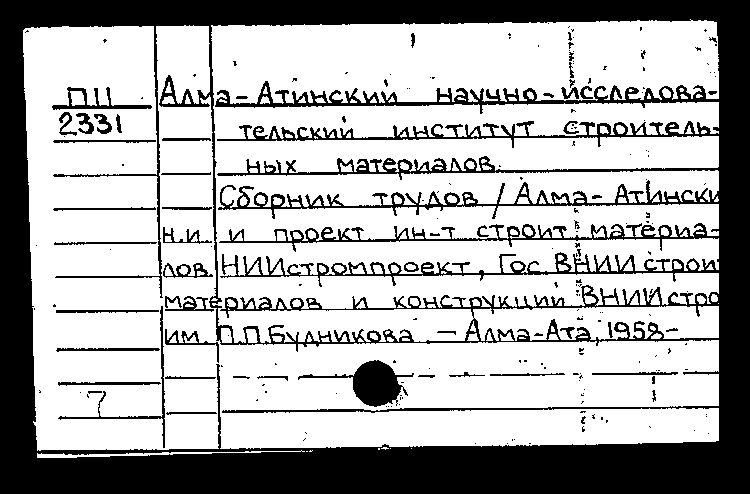 П11 Алма-Атинский научно-исследова-
2331 тельский институт строитель-
ных материалов.
Сборник трудов / Алма-Атински
н.и. и проект. ин-т строит. материа-
лов НИИстромпроект, Гос. ВНИИ строи
материалов и конструкций ВНИИстро
им. П.П.Будникова. - Алма-Ата, 1958-
7